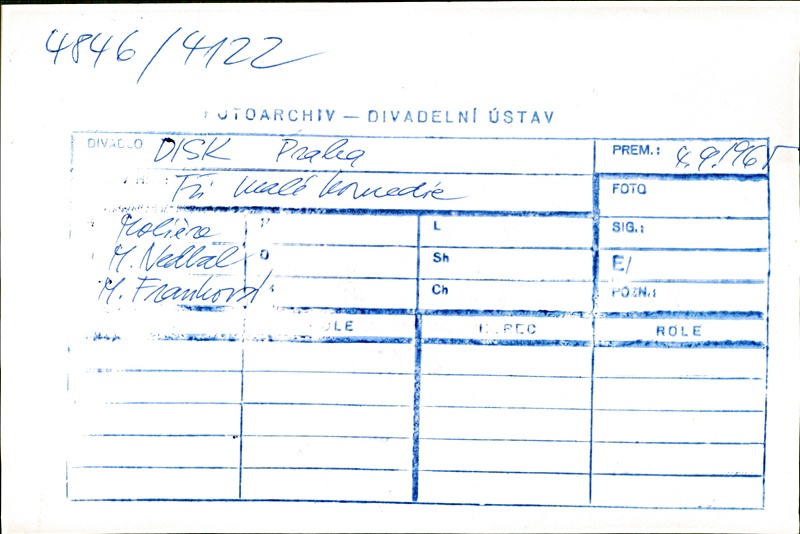 4846/4122
FOTOARCHIV — DIVADELNÍ ÚSTAV
DIVADLO DISK Praha PREM.: 4.9.1965
Tři malé komedie FOTO
Molière L SIG.:
M. Nedbal O Sh E/
M. Franková Ch POZN.:
ROLE HEREC ROLE